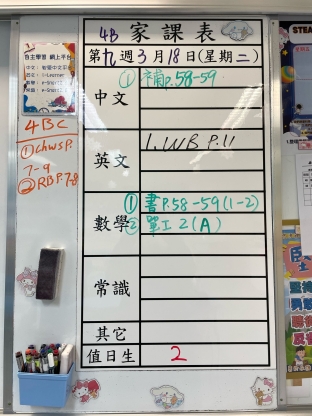 4B 家課表
第九週3月18日(星期二)
中文
① 補p.58-59
英文
1. WB P.11
數學
① 書P.58-59(1-2)
② 單工2(A)
常識
其它
值日生
2
自主學習 網上平台
4BC
① ChWSP.
7-9
② RBP.7-8
STEA